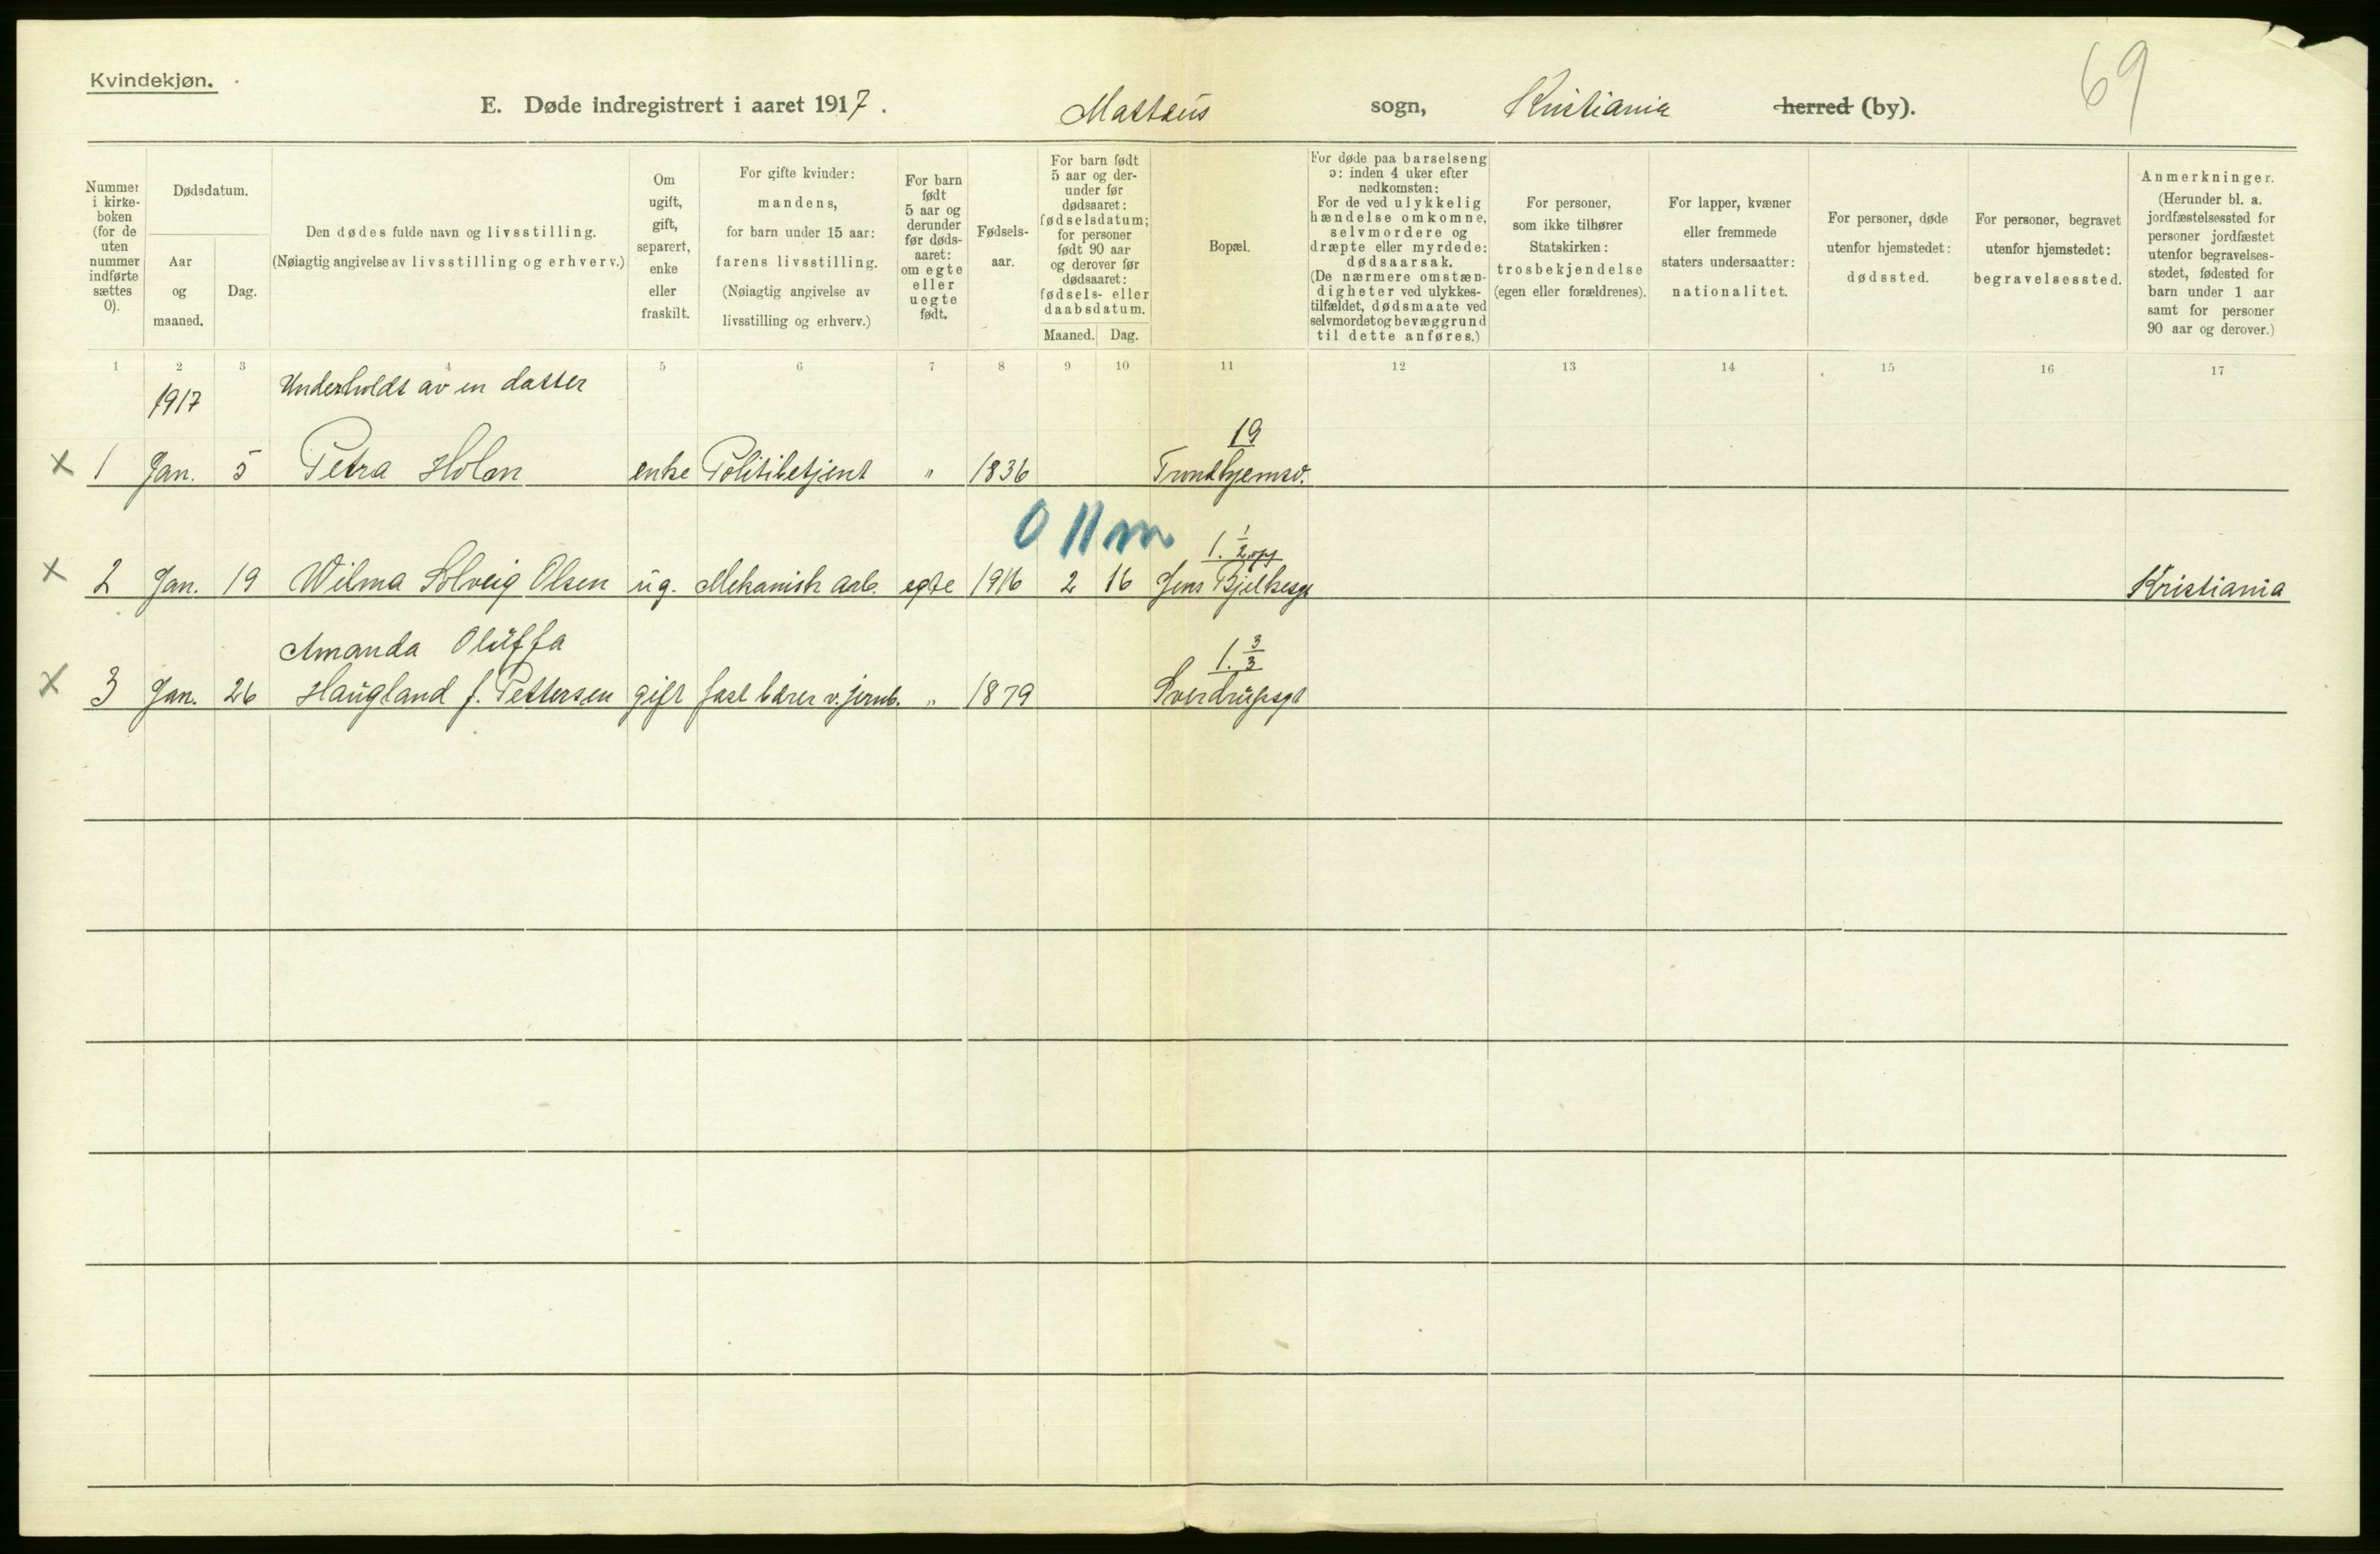 Kvindekjøn.
69
E. Døde indregistrert i aaret 1917. Mattæus sogn, Kristiania herred (by).
Nummer i kirkeboken (for de uten nummer indførte sættes 0).
Dødsdatum.
Aar og maaned.
Dag.
Den dødes fulde navn og livsstilling.
(Nøiagtig angivelse av livsstilling og erhverv.)
Om ugift, gift, separert, enke eller fraskilt.
For gifte kvinder: mandens, for barn under 15 aar: farens livsstilling. (Nøiagtig angivelse av livsstilling og erhverv.)
For barn født 5 aar og derunder før dødsaaret: om egte eller uegte født.
Fødselsaar.
For barn født 5 aar og derunder før dødsaaret: fødselsdatum; for personer født 90 aar og derover før dødsaaret: fødsels- eller daabsdatum.
Maaned. Dag.
Bopæl.
For døde paa barselseng ɔ: inden 4 uker efter nedkomsten: For de ved ulykkelig hændelse omkomne, selvmordere og dræpte eller myrdede: dødsaarsak. (De nærmere omstændigheter ved ulykkestilfældet, dødsmaate ved selvmordet og bevæggrund til dette anføres.)
For personer, som ikke tilhører Statskirken: trosbekjendelse (egen eller forældrenes).
For lapper, kvæner eller fremmede staters undersaatter: nationalitet.
For personer, døde utenfor hjemstedet: dødssted.
For personer, begravet utenfor hjemstedet: begravelsessted.
Anmerkninger. (Herunder bl. a. jordfæstelsessted for personer jordfæstet utenfor begravelsesstedet, fødested for barn under 1 aar samt for personer 90 aar og derover.)
1 2 3 4 5 6 7 8 9 10 11 12 13 14 15 16 17
1917 Underholdt av en datter
19
x 1 Jan. 5 Petra Holm enke Politibetjent " 1836 Trondhjemsv.
0 11 m
1. 1/2 opg
x 2 Jan. 19 Wilma Solveig Olsen ug. Mekanisk arb. egte 1916 2 16 Jens Bjelkesgt Kristiania
Amanda Oluffa 1. 3/3
x 3 Jan. 26 Haugland f. Pettersen gift fast bærer v. jernb. " 1879 Sverdrupsgt